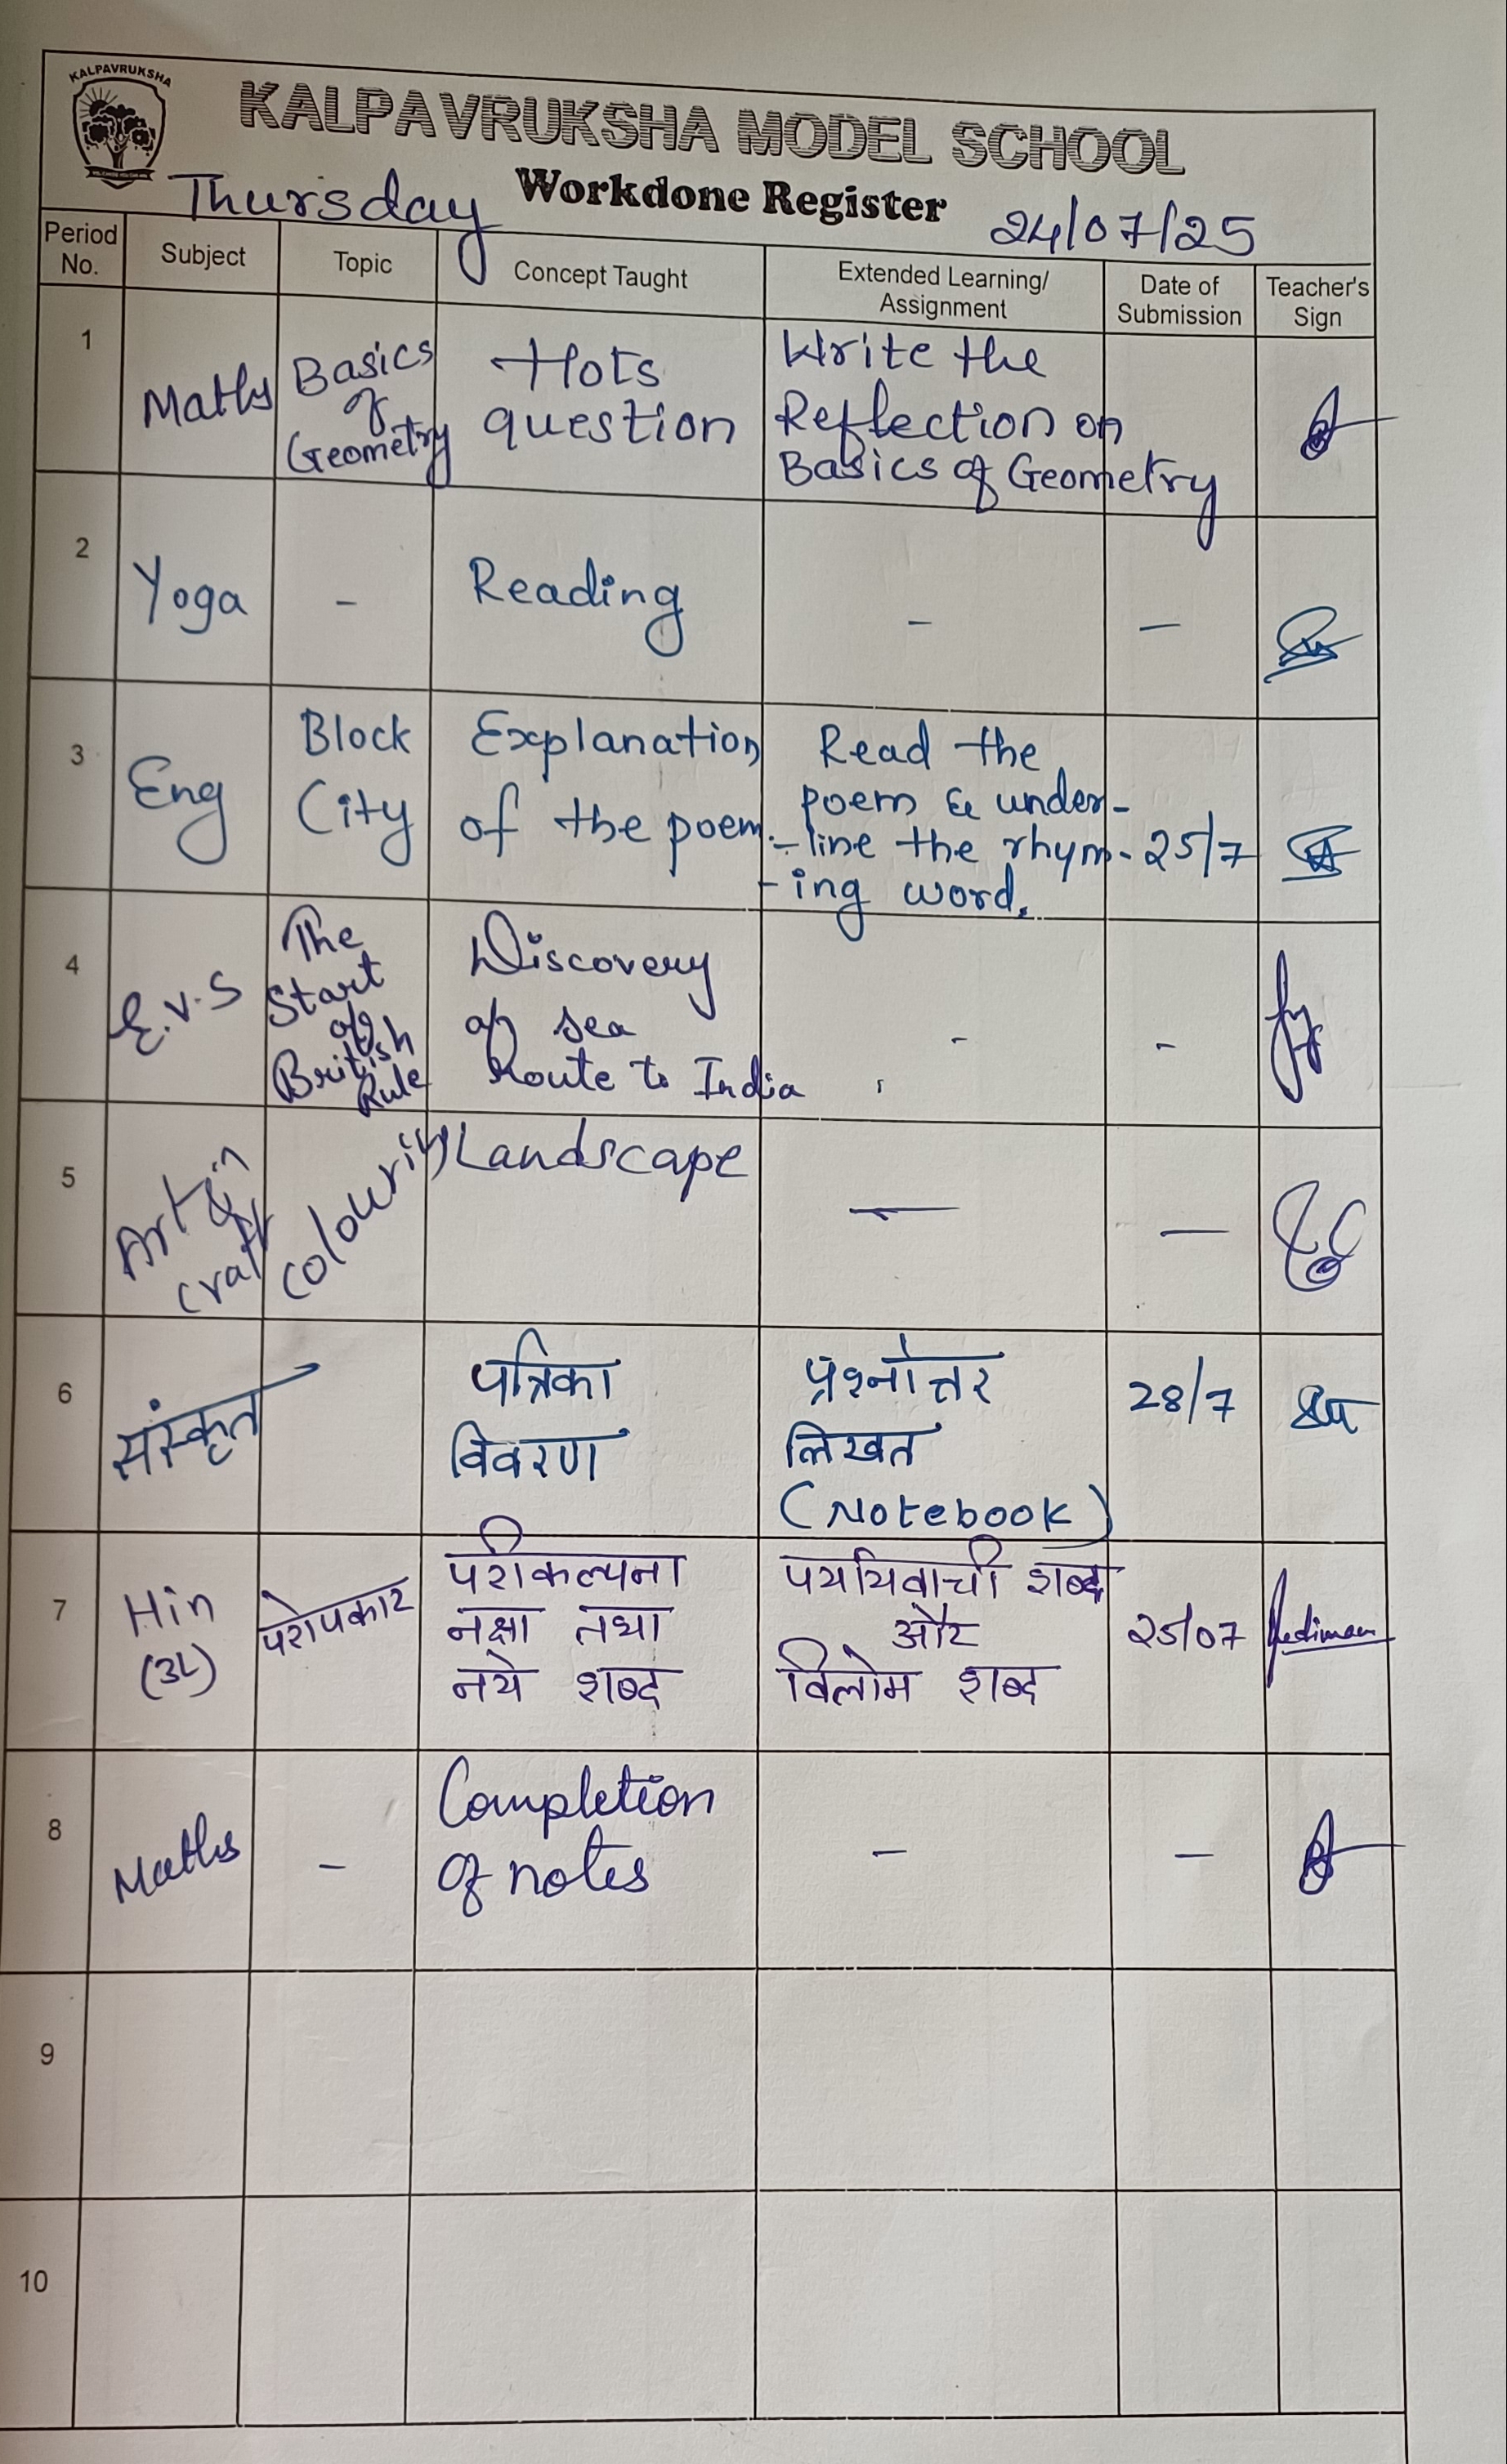 KALPAVRUKSHA
KALPAVRUKSHA MODEL SCHOOL
Workdone Register
Thursday
24/07/25
Period No.
Subject
Topic
Concept Taught
Extended Learning/
Assignment
Date of
Submission
Teacher's
Sign
1
Maths
Basics
of
Geometry
Hots
question
Write the
Reflection on
Basics of Geometry
2
Yoga
-
Reading
-
-
3
Eng
Block
City
Explanation
of the poem.
Read the
poem & under-
-line the rhym-
-ing word.
25/7
4
E.V.S
The
Start
of
British
Rule
Discovery
of sea
Route to India
-
-
5
Art &
craft
colouring
Landscape
-
-
6
संस्कृत
पत्रिका
विवरण
प्रश्नोत्तर
लिखत
(Notebook)
28/7
7
Hin
(3L)
परोपकार
परिकल्पना
नक्षा तथा
नये शब्द
पर्यायवाची शब्द
और
विलोम शब्द
25/07
8
Maths
-
Completion
of notes
-
-
9
10